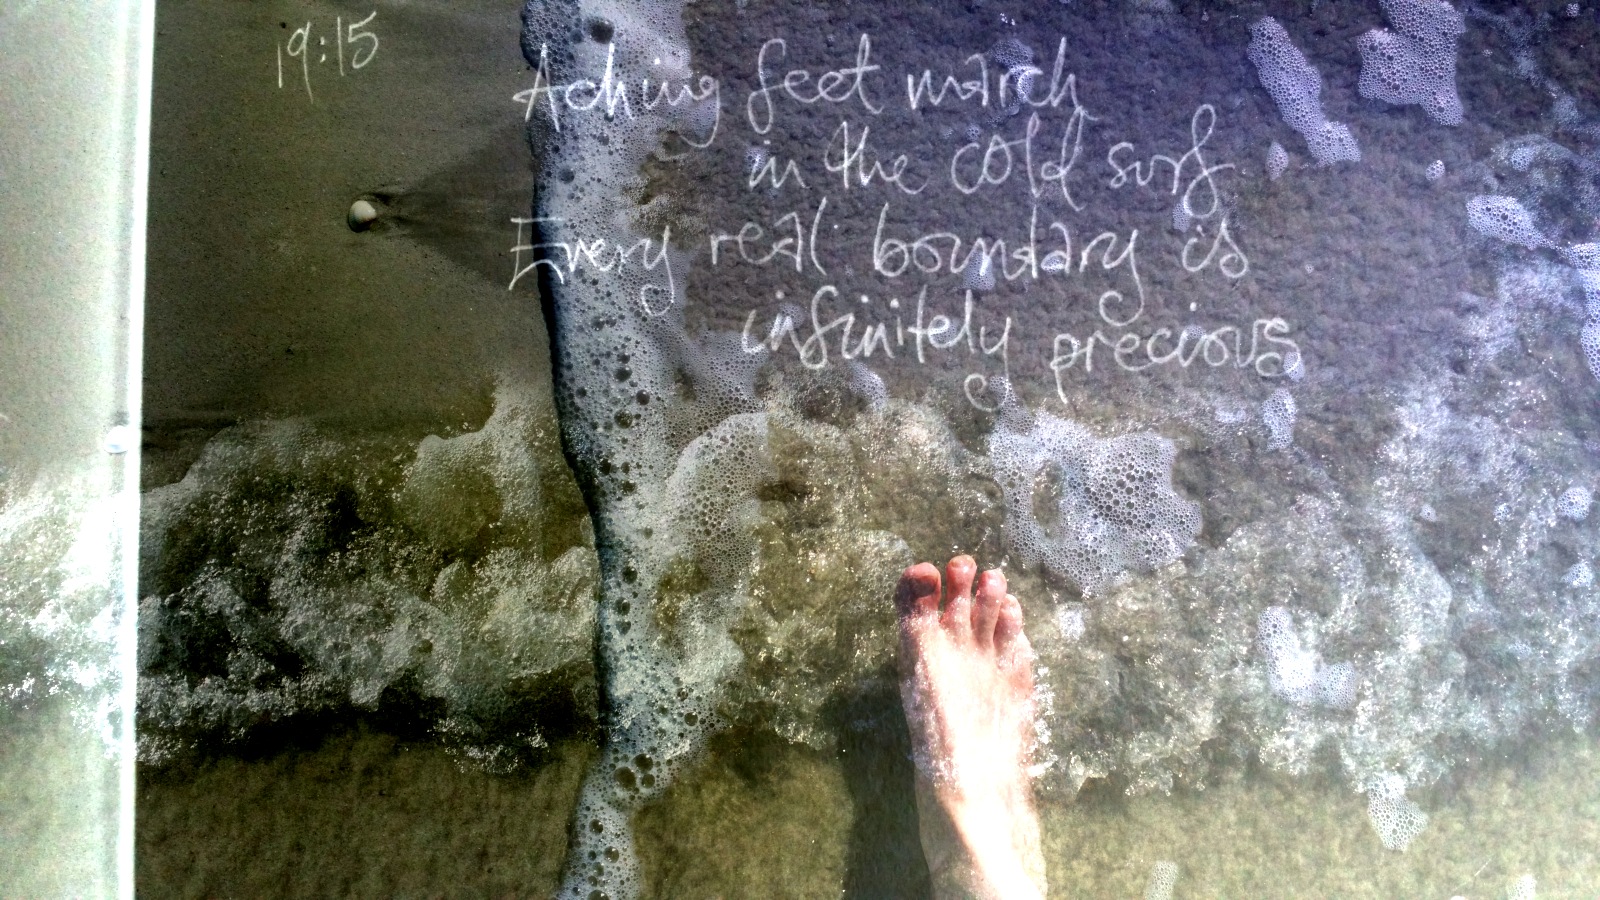 19:15
Aching feet march
in the cold surf
Every real boundary is
infinitely precious